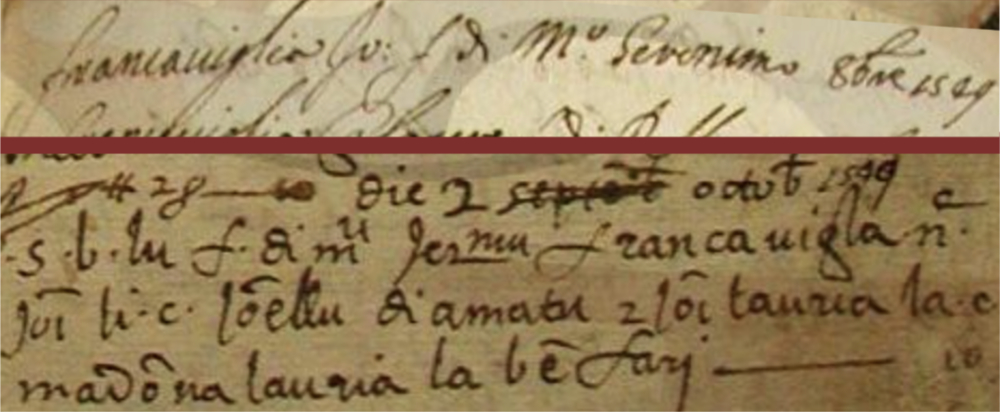 francaviglia Jo: f di Mº Geronimo 8bre 1549
# 28 — die 2 septēb octob 1549
s. b. lu f. di mu Jermu francavigla n. c
Joī li. c. Joēllu di amatu 2 Joī lauria la. c
madōna lauria la bē fari — 10